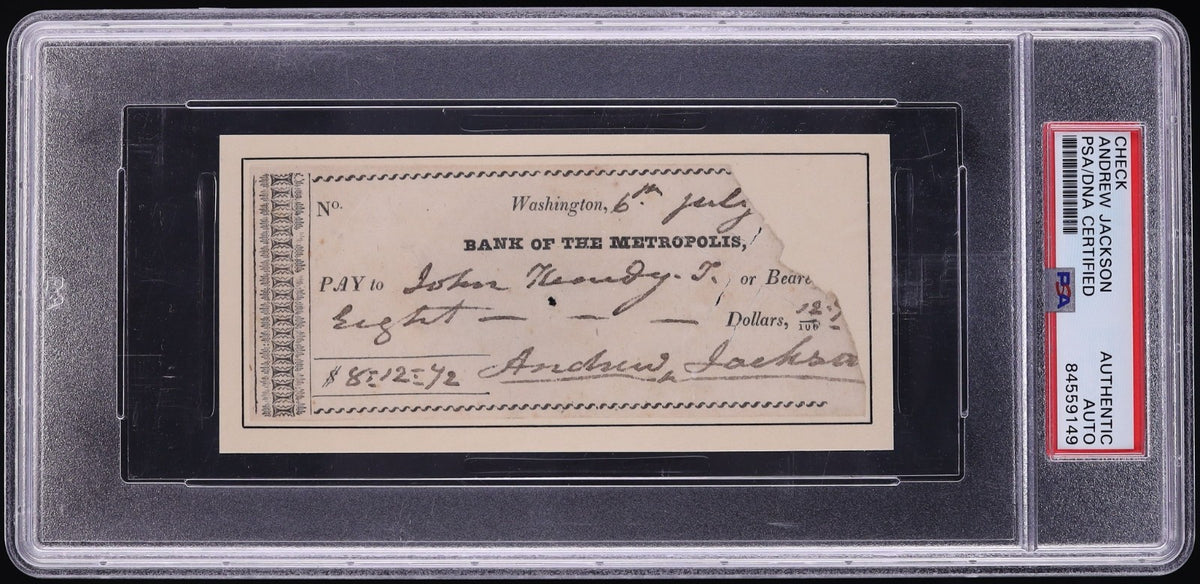 No. Washington, 6th july
BANK OF THE METROPOLIS,
PAY to John Kendy. T. or Beare
Eight — — — Dollars, 12 /100
$ 8=12=1/2 Andrew Jackson
CHECK
ANDREW JACKSON
PSA/DNA CERTIFIED
PSA
AUTHENTIC
AUTO
84559149